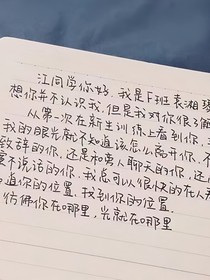 江同学你好，我是F班袁湘琴
想你并不认识我，但是我对你很了解
从第一次在新生训练上看到你，
我的眼光就不知道该怎么离开你，不
致辞的你，还是和男人聊天的你，还
爱不说话的你，我总可以很快的在人
道你的位置，找到你的位置
仿佛你在哪里，光就在哪里